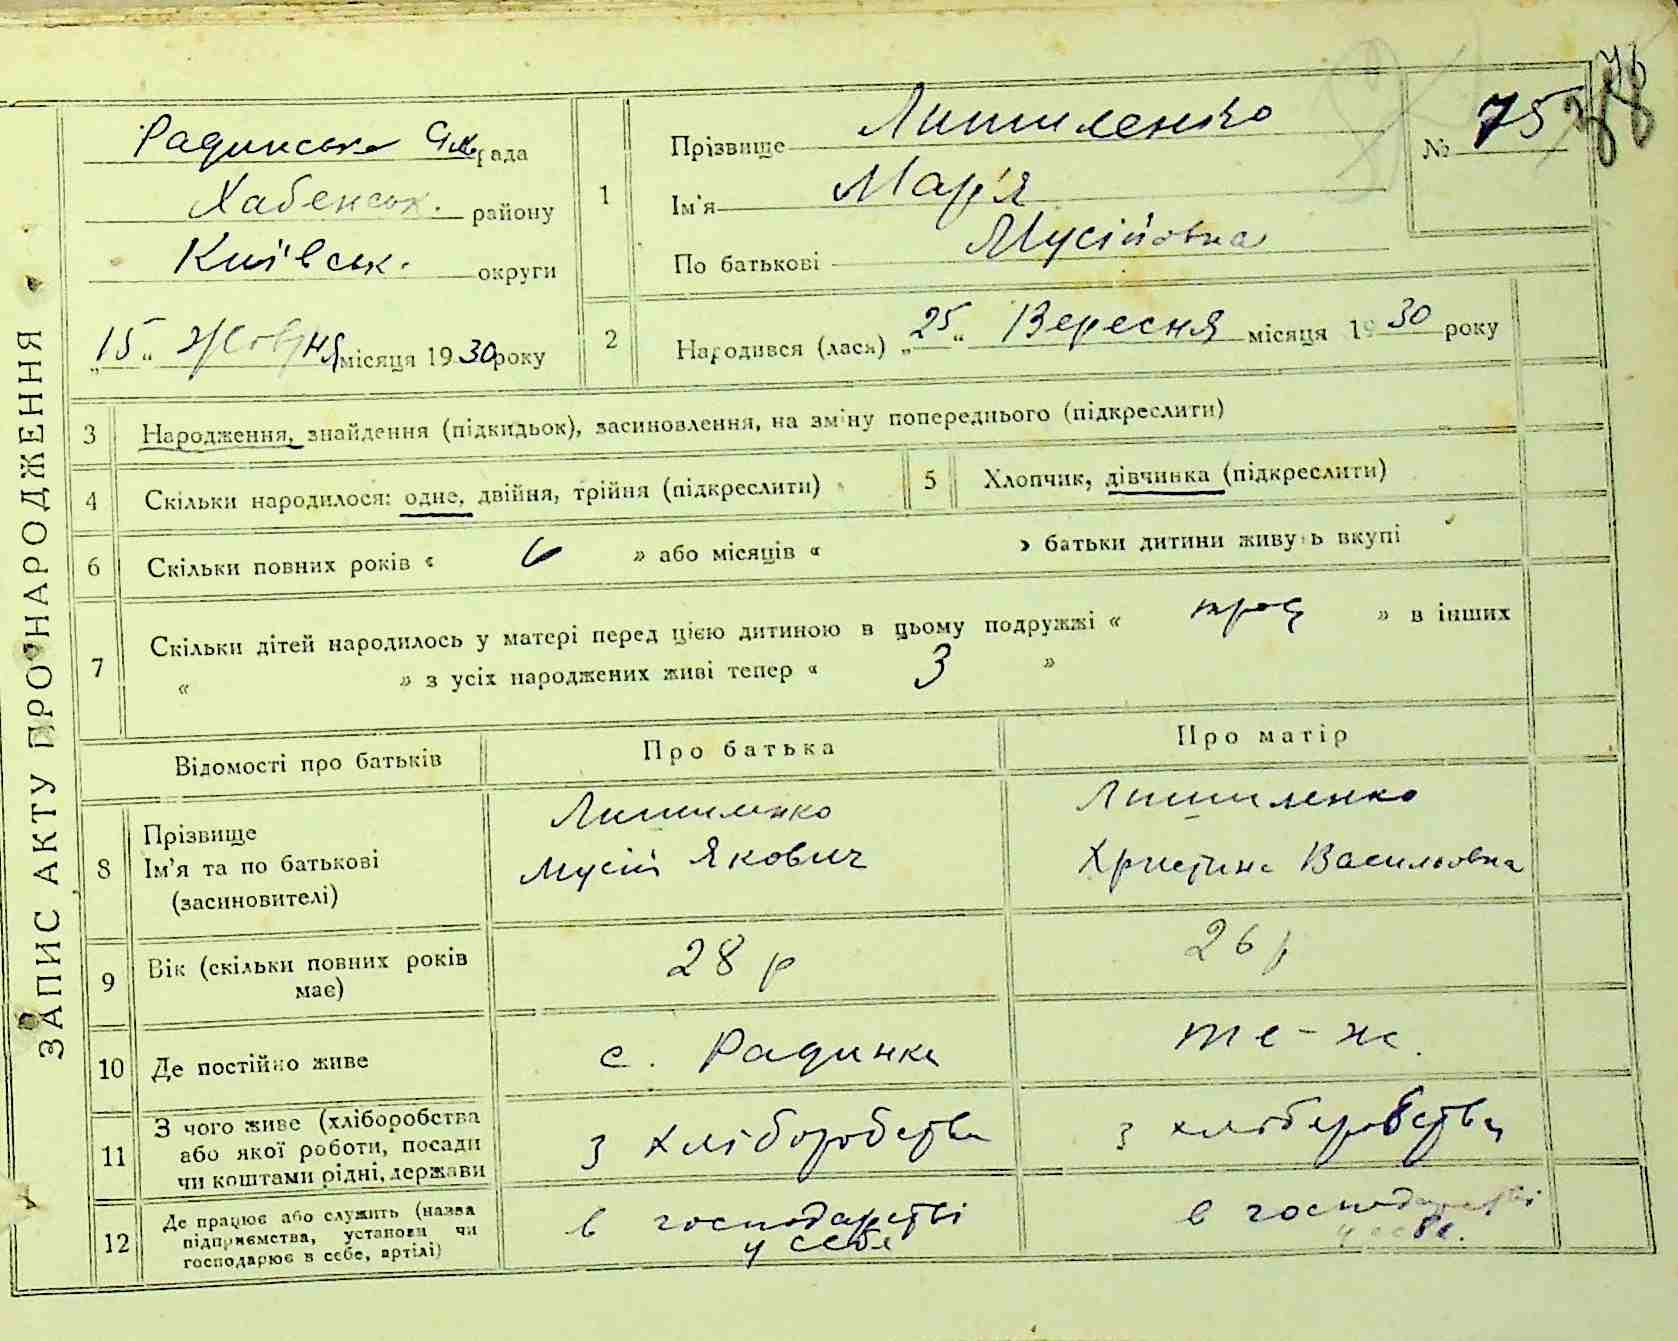 ЗАПИС АКТУ ПРО НАРОДЖЕННЯ
Радинська рада
Хабенськ. району
Київськ. округи
„15“ Жовтня місяця 1930 року
1
Прізвище Лишиленко
Ім'я Мар'я
По батькові Мусійовна
№ 75
2
Народився (лася) „25“ Вересня місяця 1930 року
3 Народження, знайдення (підкидьок), засиновлення, на зміну попереднього (підкреслити)
4 Скільки народилося: одне, двійня, трійня (підкреслити)
5 Хлопчик, дівчинка (підкреслити)
6 Скільки повних років « 6 » або місяців « » батьки дитини живуть вкупі
7 Скільки дітей народилось у матері перед цією дитиною в цьому подружжі « троє » в інших
« » з усіх народжених живі тепер « 3 »
Відомості про батьків Про батька Про матір
8 Прізвище Лишиленко Лишиленко
Ім'я та по батькові Мусій Якович Христина Васильовна
(засиновителі)
9 Вік (скільки повних років має) 28 р 26 р
10 Де постійно живе с. Радинка те-ж.
11 З чого живе (хліборобства
або якої роботи, посади
чи коштами рідні, держави
з хліборобства з хліборобства
12 Де працює або служить (назва
підприємства, установи чи
господарює в себе, артілі)
в господарстві в господарстві
у себе у себе.